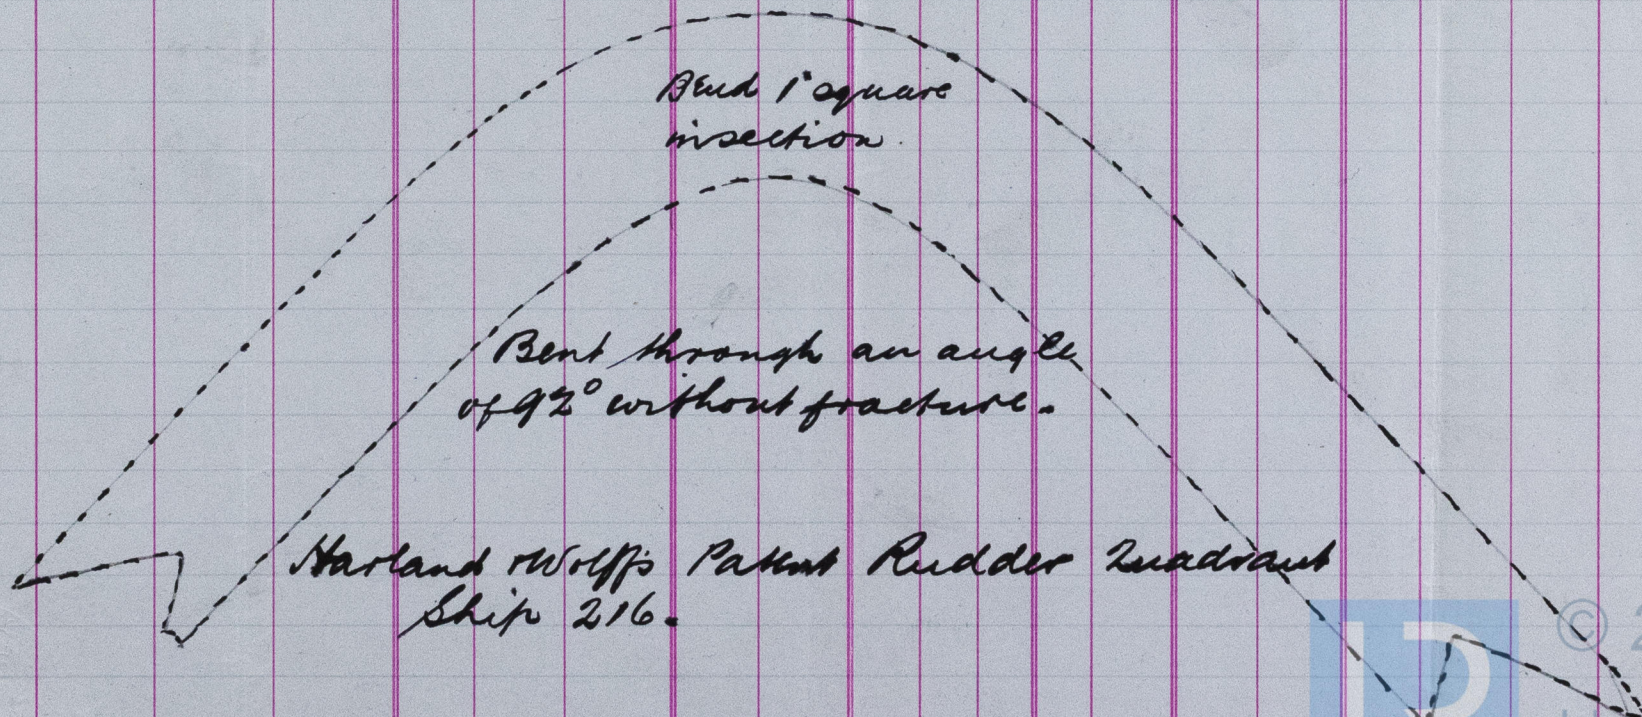 Bend 1" square
in section
Bent through an angle
of 92° without fracture.
Harland & Wolff's Patent Rudder Quadrant
Ship 216.
© 2